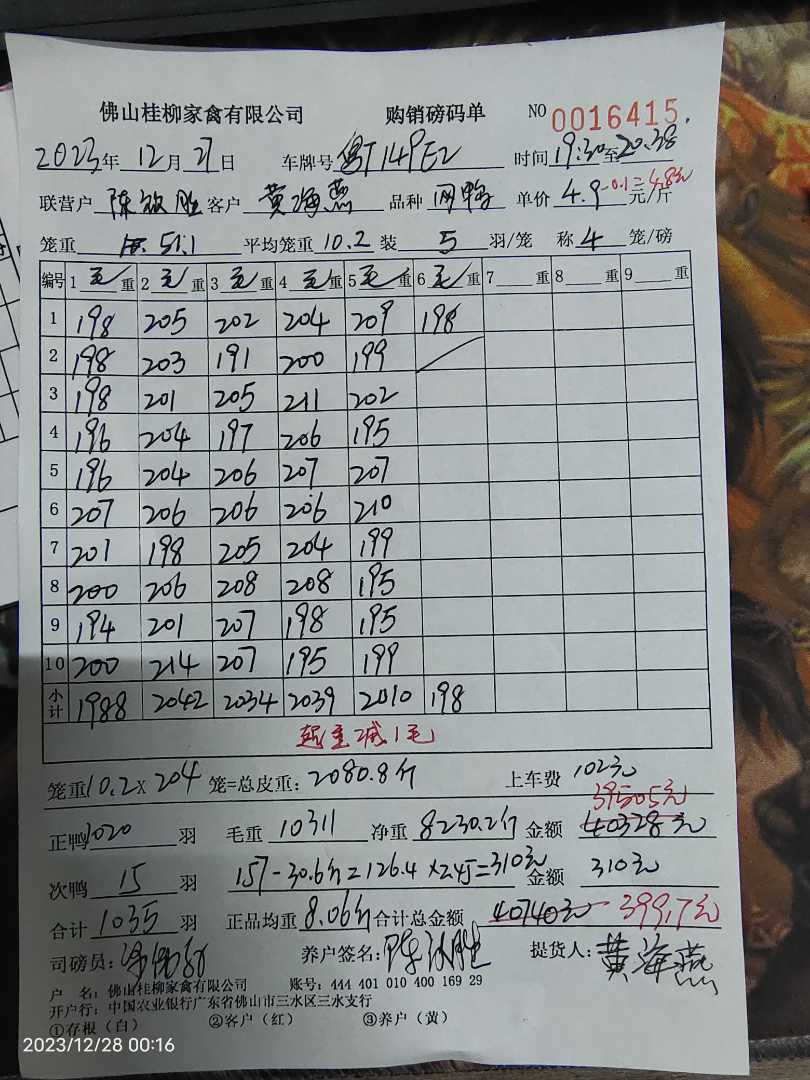 佛山桂柳家禽有限公司 购销磅码单 NO 0016415
2023年 12月 27日 车牌号 粤T149E2 时间 19:30至20:38
联营户 陈敏胜 客户 黄海燕 品种 网鸭 单价 4.9 -0.1=4.8元 元/斤
笼重 51.1 平均笼重 10.2 装 5 羽/笼 称 4 笼/磅
编号 1 毛 重 2 毛 重 3 毛 重 4 毛 重 5 毛 重 6 毛 重 7 重 8 重 9 重
1 198 205 202 204 209 198
2 198 203 191 200 199
3 198 201 205 211 202
4 196 204 197 206 195
5 196 204 206 207 207
6 207 206 206 206 210
7 201 198 205 204 199
8 200 206 208 208 195
9 194 201 207 198 195
10 200 214 207 195 199
小计 1988 2042 2034 2039 2010 198
超重减1毛
笼重 10.2 X 204 笼=总皮重: 2080.8斤 上车费 102元
39505元
正鸭 1020 羽 毛重 10311 净重 8230.2斤 金额 40328元
次鸭 15 羽 157-30.6斤=126.4×2.45=310元 金额 310元
合计 1035 羽 正品均重 8.06斤 合计总金额 40740元 399,7元
司磅员: 养户签名: 陈敏胜 提货人: 黄海燕
户 名: 佛山桂柳家禽有限公司 账号: 444 401 010 400 169 29
开户行: 中国农业银行广东省佛山市三水区三水支行
①存根(白) ②客户(红) ③养户(黄)
2023/12/28 00:16